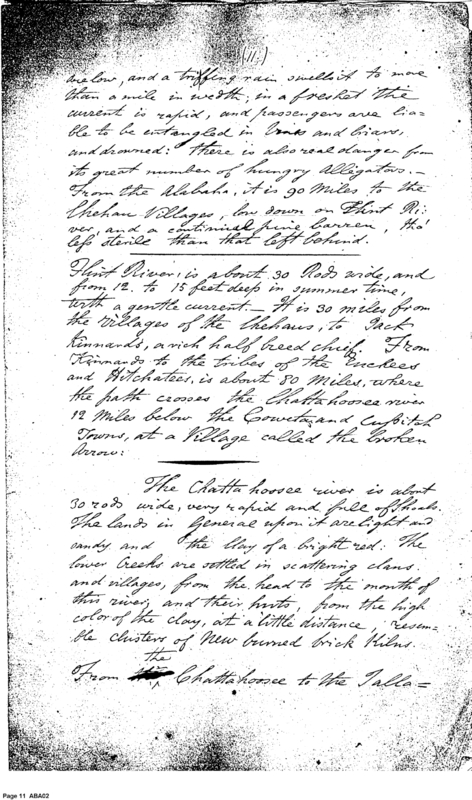 (11.)
are low, and a triffling rain swells it to more
than a mile in wedth; in a freshet the
current is rapid, and passengers are lia=
ble to be entangled in vines and briars,
and drowned: there is also real danger from
its great number of hungry Alligators.—
From the Alabaha, it is 90 Miles to the
Chehau Villages, low down on Flint Ri:
ver, and a continual pine barren, tho'
less sterile than that left behind.
Flint River, is about 30 Rods wide, and
from 12. to 15 feet deep in summer time,
with a gentle current.— It is 30 miles from
the Villages of the Chehaus, to Jack
Kinnard's, a rich half breed chief. From
Kinnards to the tribes of the Euchees
and Hitchatees, is about 80 Miles, where
the path crosses the Chattahoosee river
12 Miles below the Coweta, and Cussitah
Towns, at a Village called the broken
Arrow:
The Chattahoosee river is about
30 rods wide, very rapid and full of Shoals.
The lands in General upon it are light and
sandy and the Clay of a bright red. The
lower Creeks are settled in scattering clans.
and villages, from the head to the mouth of
this river, and their huts, from the high
color of the clay, at a little distance, resem=
ble clusters of New burned brick Kilns.
the
From Chattahoosee to the Talla=
Page 11 ABA02